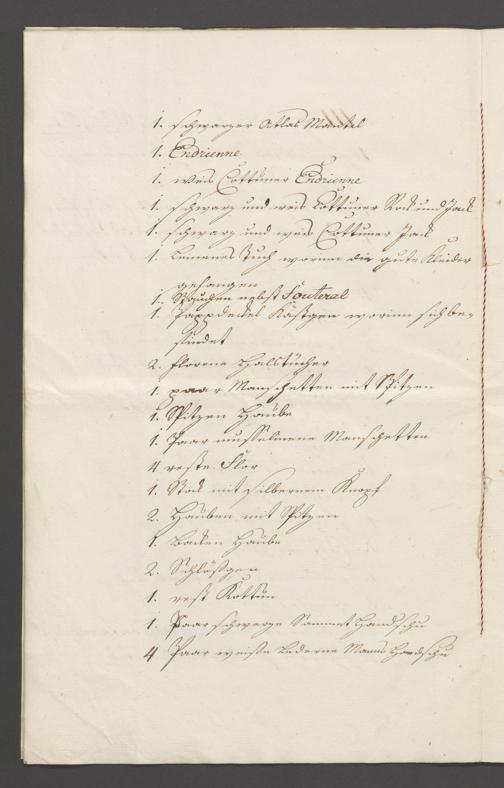 1. schwarzer Atlas Mantel
1. Endrienne
1. weis Cottuner Endrienne
1. schwarz und weis Cottuner Rock und Jack
1. schwarz und weis Cottuner Jack
1. Leinenes Tuch worinn die gute Kleider
gehangen
1. Rauchen nebst Fouteral
1. Pappdeckel Kästgen worinn sich be=
findet
2. florene Halstücher
1. paar Manschetten mit Spitzen
1. Spitzen Haube
1. Paar musselinene Manschetten
4 reste Flor
1. Stock mit silbernem Knopf
2. Hauben mit Spitzen
1. Backen Haube
2. Schlößgen
1. rest Kottun
1. Paar schwarze Sammet Handschu
4 Paar weisse Lederne Manns Handschu